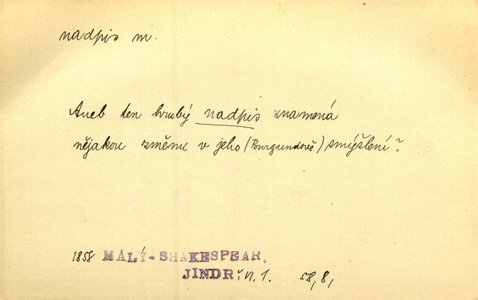 nadpis m.
Aneb ten hrubý nadpis znamená
nějakou změnu v jeho (Burgundově) smýšlení?
1858 MALÝ-SHAKESPEAR,
JINDŘ. VI. 1. 58,8,